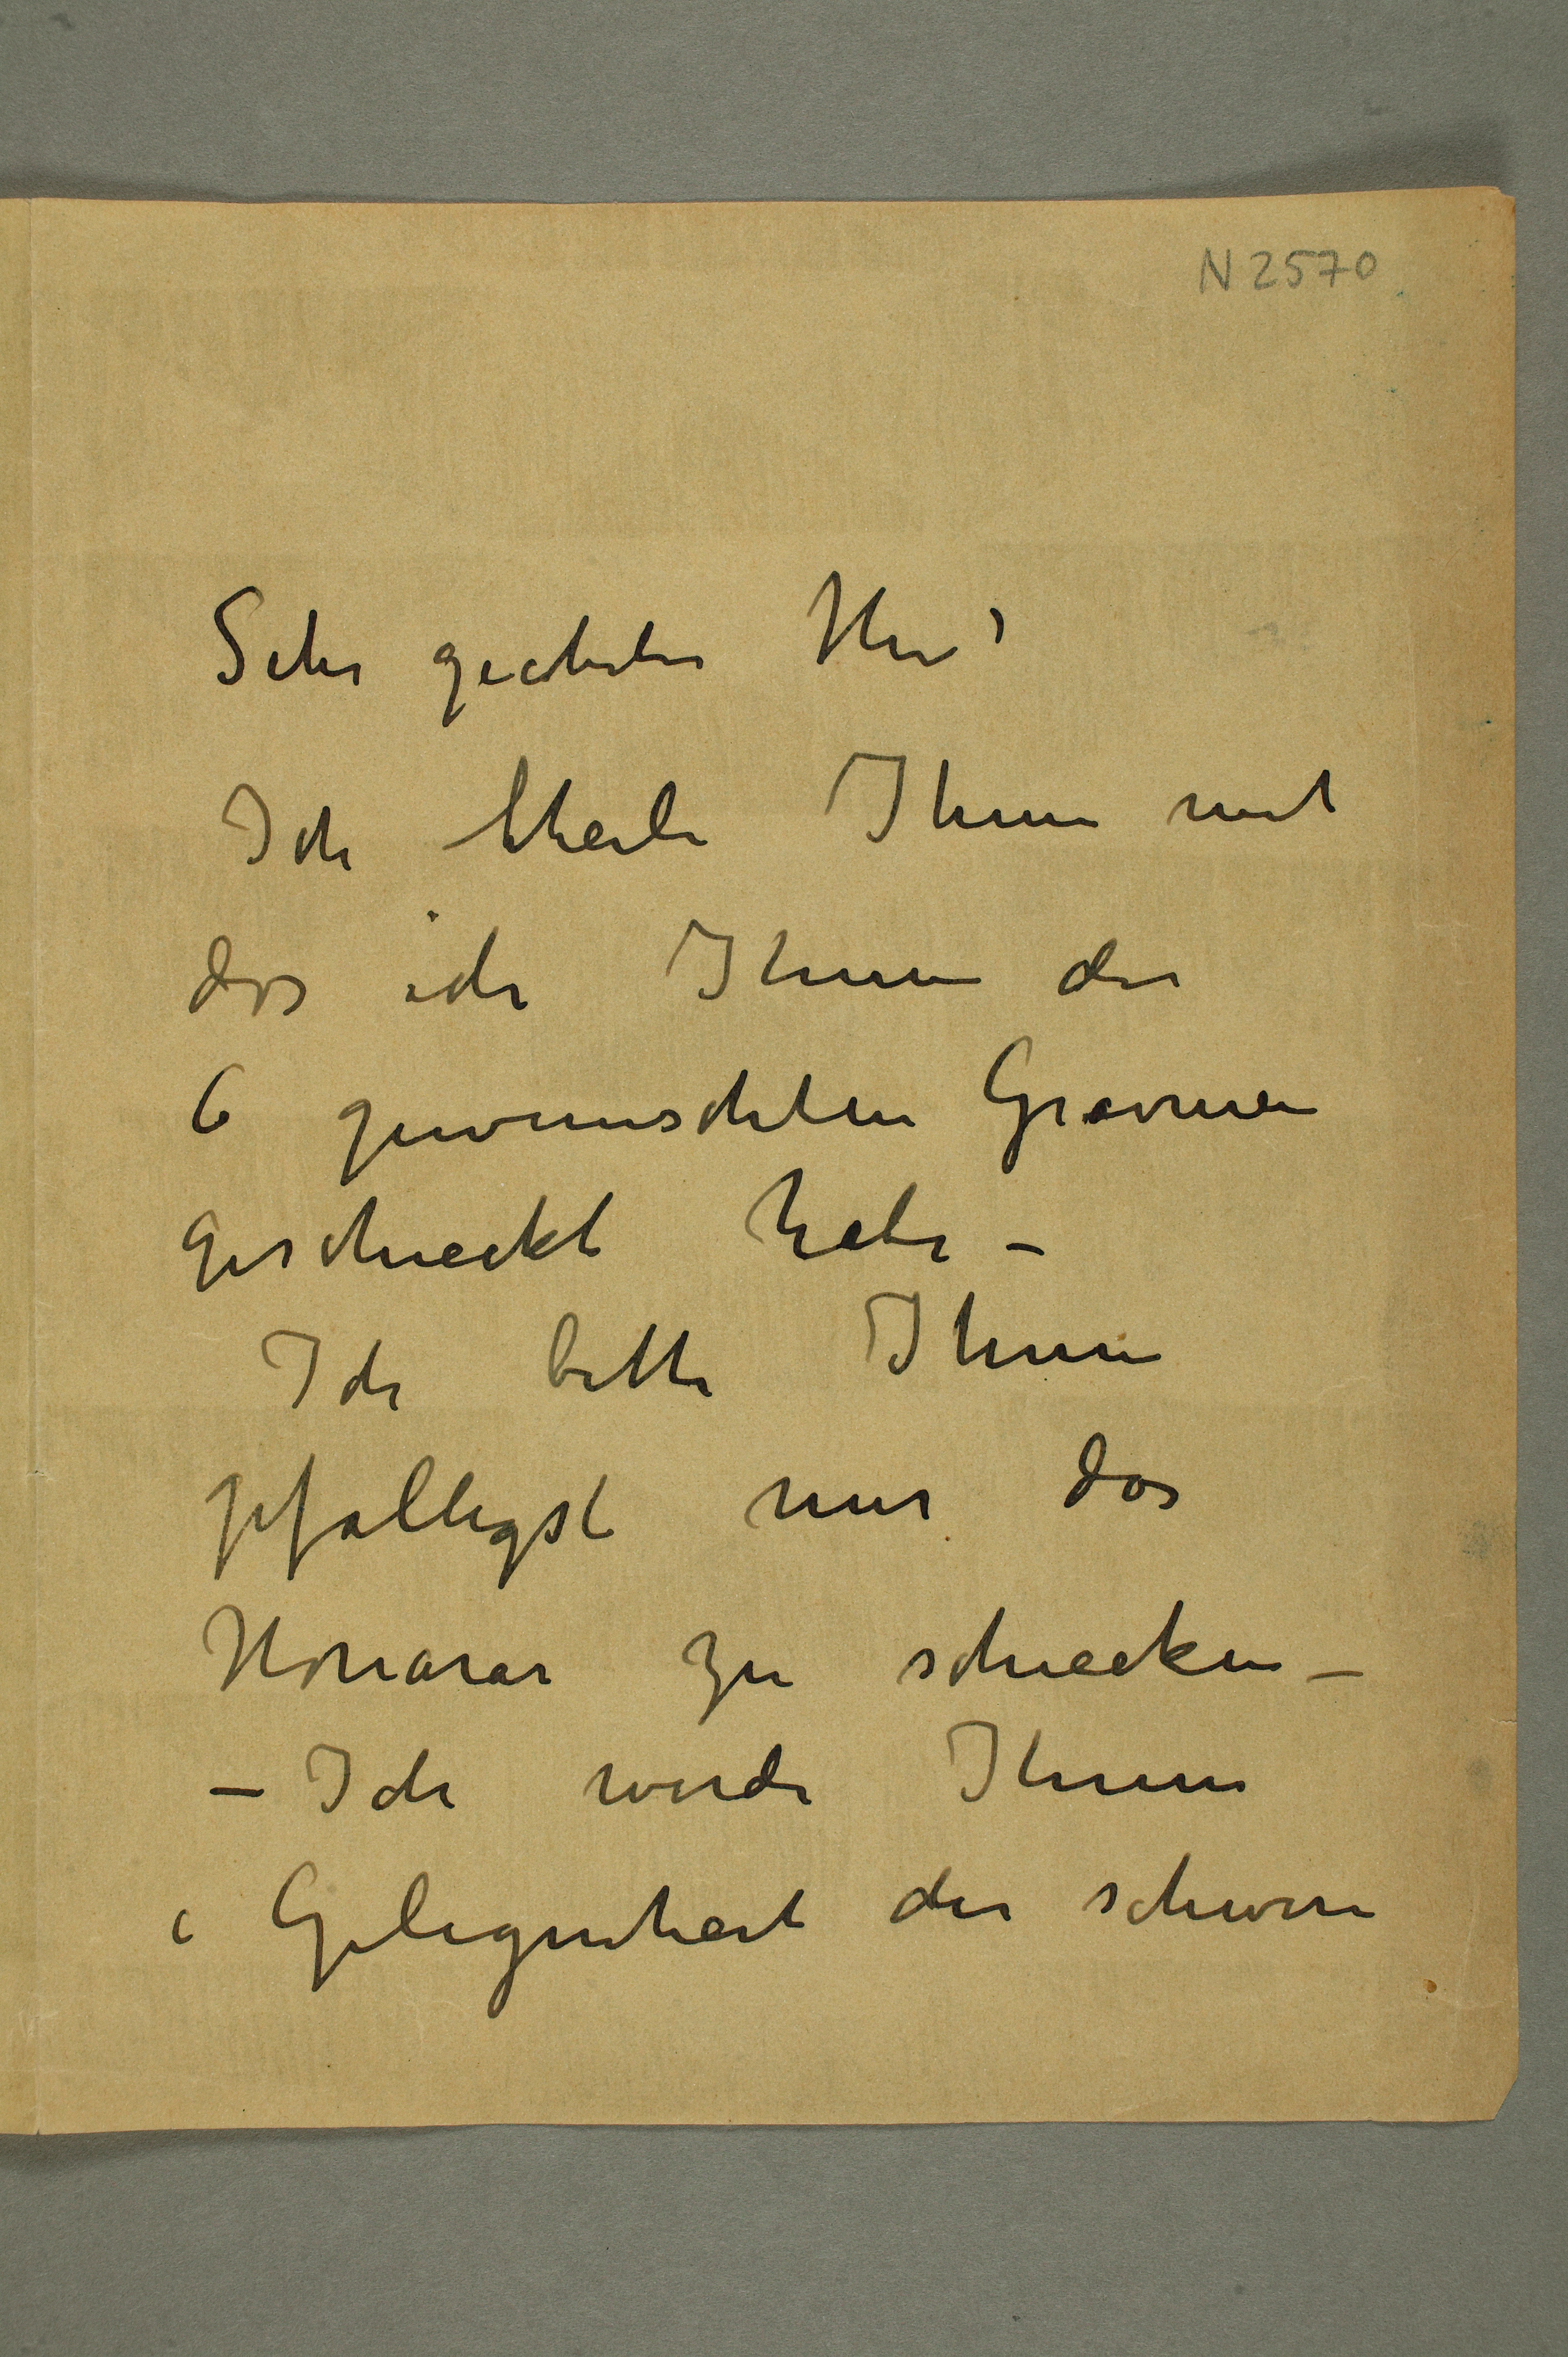 N 2570
Sehr geehrter Herr
Ich theile Ihnen mit
das ich Ihnen die
6 gewunschten Gravuren
geschieckt habe –
Ich bitte Ihnen
gefalligst mir das
Honorar zu schiecken –
– Ich werde Ihnen
Gelegenheit die